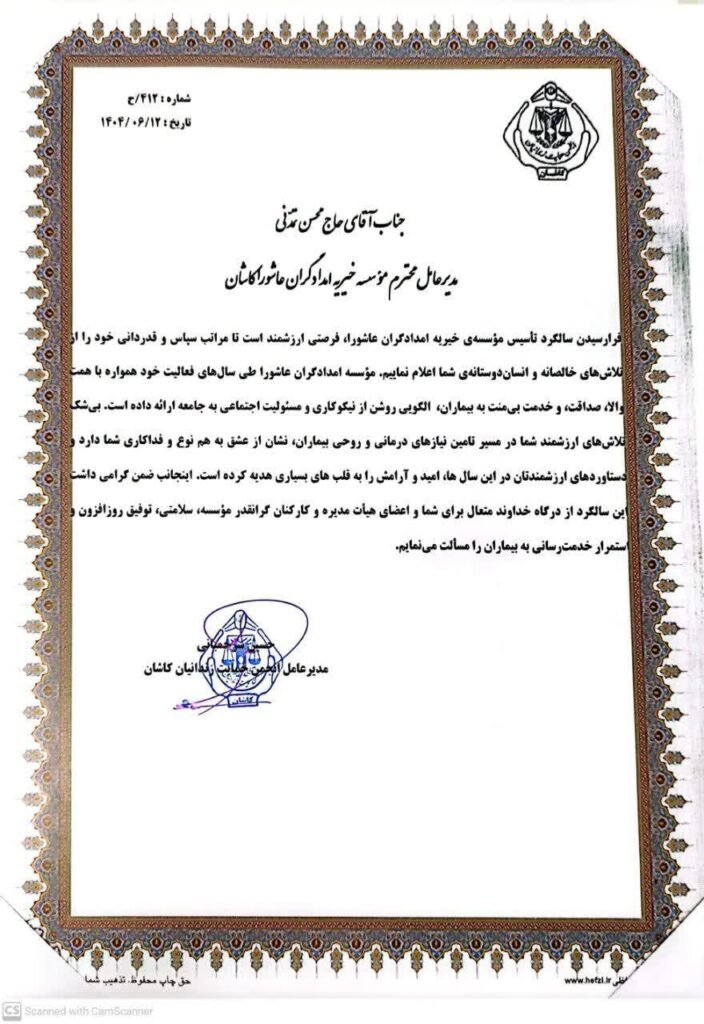 شماره : ۴۱۲/ح
تاریخ : ۱۴۰۴/۰۶/۱۲
کاشان
جناب آقای حاج محسن تمدّنی
مدیرعامل محترم مؤسسه خیریه امدادگران عاشورا کاشان
فرارسیدن سالگرد تأسیس مؤسسه‌ی خیریه امدادگران عاشورا، فرصتی ارزشمند است تا مراتب سپاس و قدردانی خود را از
تلاش‌های خالصانه و انسان‌دوستانه‌ی شما اعلام نماییم. مؤسسه امدادگران عاشورا طی سال‌های فعالیت خود همواره با همت
والا، صداقت، و خدمت بی‌منت به بیماران، الگویی روشن از نیکوکاری و مسئولیت اجتماعی به جامعه ارائه داده است. بی‌شک
تلاش‌های ارزشمند شما در مسیر تامین نیازهای درمانی و روحی بیماران، نشان از عشق به هم نوع و فداکاری شما دارد و
دستاوردهای ارزشمندتان در این سال ها، امید و آرامش را به قلب های بسیاری هدیه کرده است. اینجانب ضمن گرامی داشت
این سالگرد از درگاه خداوند متعال برای شما و اعضای هیأت مدیره و کارکنان گرانقدر مؤسسه، سلامتی، توفیق روزافزون و
استمرار خدمت‌رسانی به بیماران را مسألت می‌نمایم.
حسین
مدیرعامل انجمن حمایت زندانیان کاشان
کاشان
حق چاپ محفوظ. تذهیب شما
www.hefzi.ir
CS Scanned with CamScanner